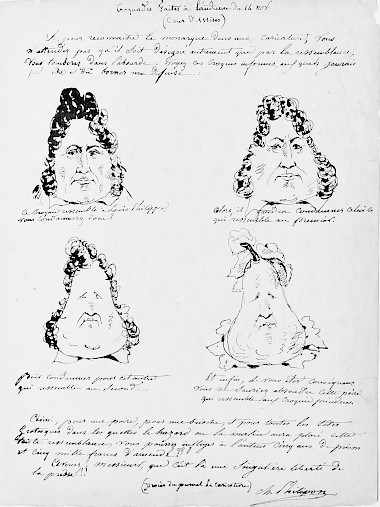 Croquades faites à l'audience du 14 nov.
(Cour d'Assises)
Si, pour reconnaître le monarque dans une caricature, vous
n'attendez pas qu'il soit désigné autrement que par la ressemblance,
vous tomberez dans l'absurde. Voyez ces croquis informes, auxquels j'aurais
peut-être dû borner ma défense :
Ce croquis ressemble à Louis Philippe,
vous condamnerez donc ?
Alors il faudra condamner celui-ci
qui ressemble au premier.
Puis condamner pour cet autre
qui ressemble au second.
Et enfin, si vous êtes conséquens,
vous ne sauriez absoudre cette poire
qui ressemble aux croquis précédens.
Ainsi, pour une poire, pour une brioche, et pour toutes les têtes
grotesques dans lesquelles le hazard ou la malice aura placé cette
triste ressemblance, vous pourrez infliger à l'auteur cinq ans de prison
et cinq mille francs d'amende !!
Avouez, Messieurs, que c'est là une singulière liberté de
la presse !!
Ch. Philipon